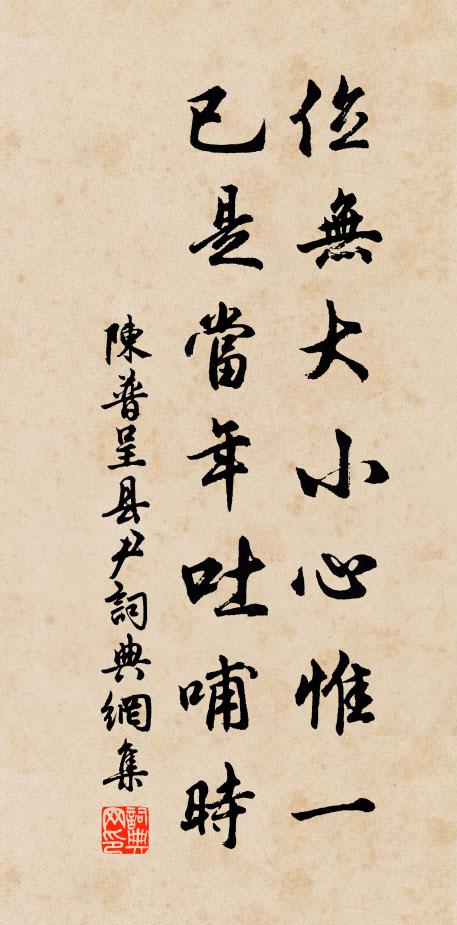 位無大小心惟一
已是當年吐哺時
陳普呈县尹詞典網集
詞典网印